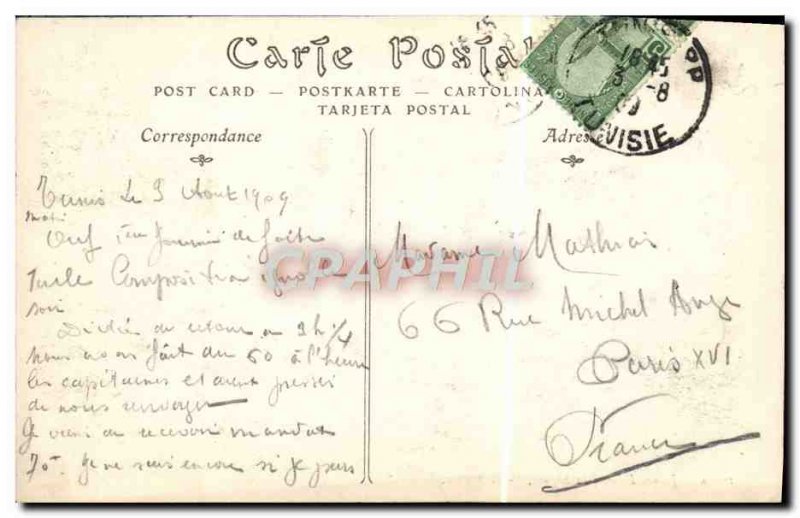 Carte Postale
POST CARD — POSTKARTE — CARTOLINA
TARJETA POSTAL
Correspondance
Adresse
18 45
3 -8
09
TUNISIE
Tunis le 3 Aout 1909
matin
Oeuf
de faite
Composition
soir
Dictée au retour a 2h 1/4
nous avons fait du 60 à l'heure
les capitaines et aient pressés
de nous renvoyer
Je viens de recevoir mandat
70f. Je ne sais encore si je pars
CPAPHIL
Madame Mathias
66 Rue Michel Ange
Paris XVI
France